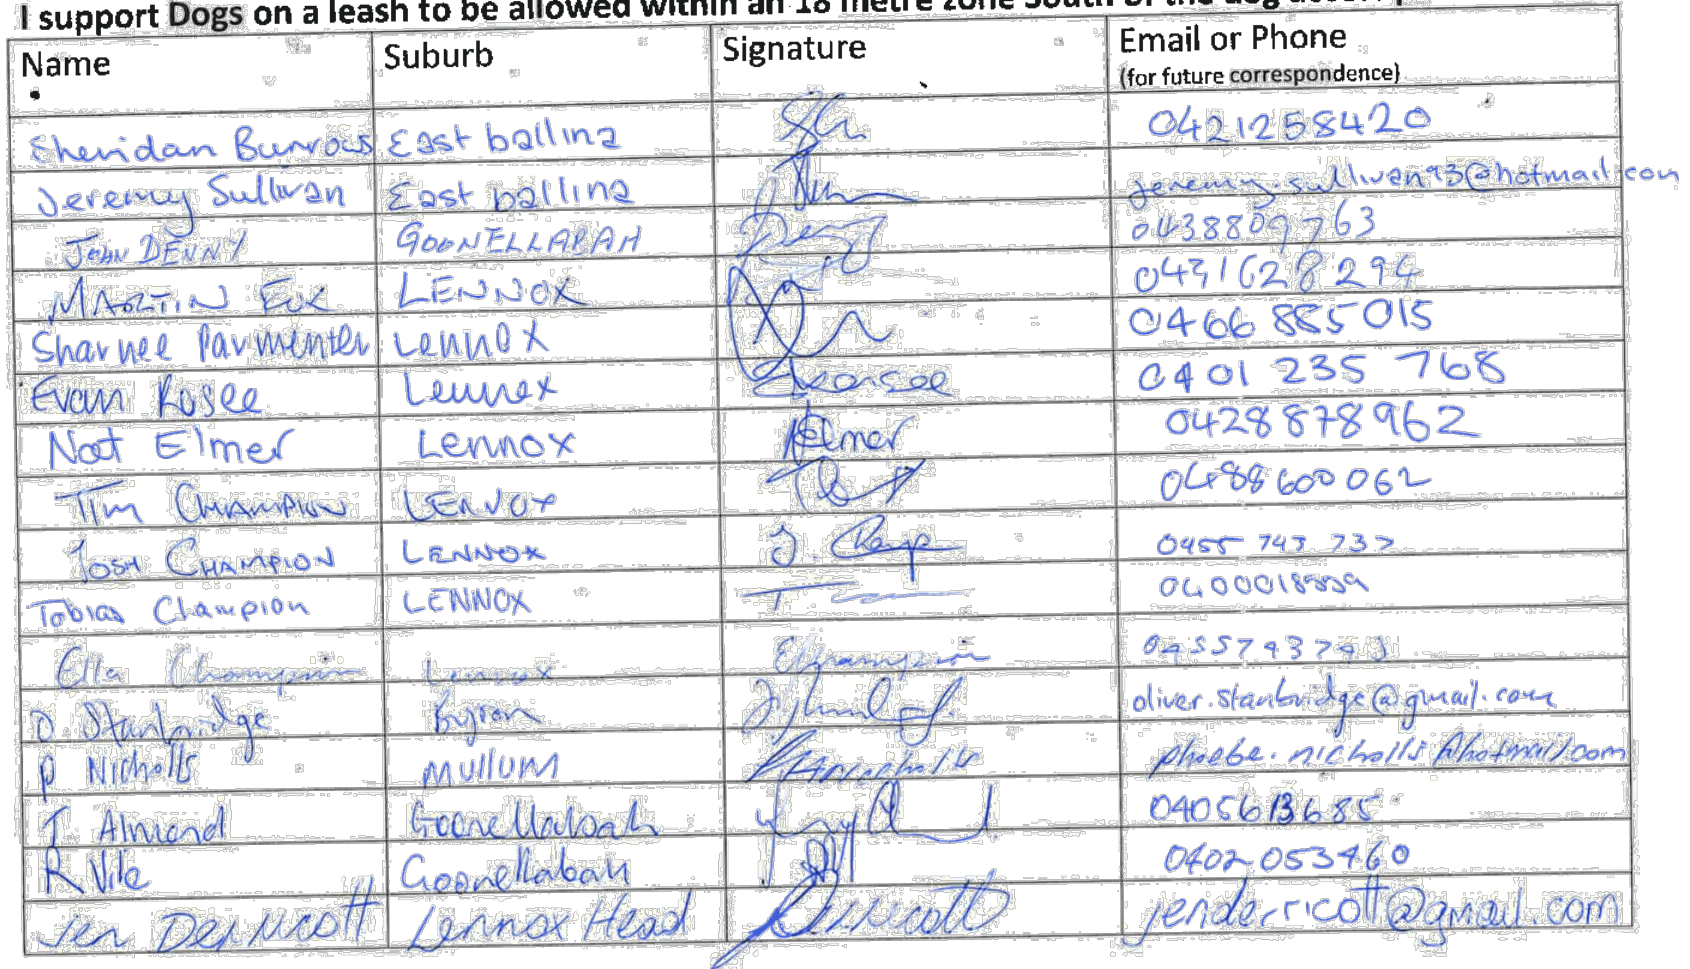 I support Dogs on a leash to be allowed within an 18 metre zone South of the dog
Name Suburb Signature Email or Phone
(for future correspondence)
Sheridan Burrows East ballina 0421258420
Jeremy Sullivan East ballina jeremy.sullivan93@hotmail.com
JOHN DENNY GOONELLABAH Denny 0438809763
MARTIN FOX LENNOX 0431628294
Sharnee Parmenter Lennox 0466 885 015
Evan Rosee Lennox 0401 235 768
Nat Elmer Lennox Elmer 0428878962
Tim CHAMPION LENNOX 0488600062
JOSH CHAMPION LENNOX J. Champ 0455 743 737
Tobias Champion LENNOX
Ella Champion Lennox EChampion
O Stanbridge Byron oliver.stanbridge@gmail.com
P Nicholls MULLUM PNicholls phoebe.nicholls@hotmail.com
T Almond Goonellabah 0405613685
R Vile Goonellabah 0402 053460
Jen Derricott Lennox Head Derricott jenderricott@gmail.com